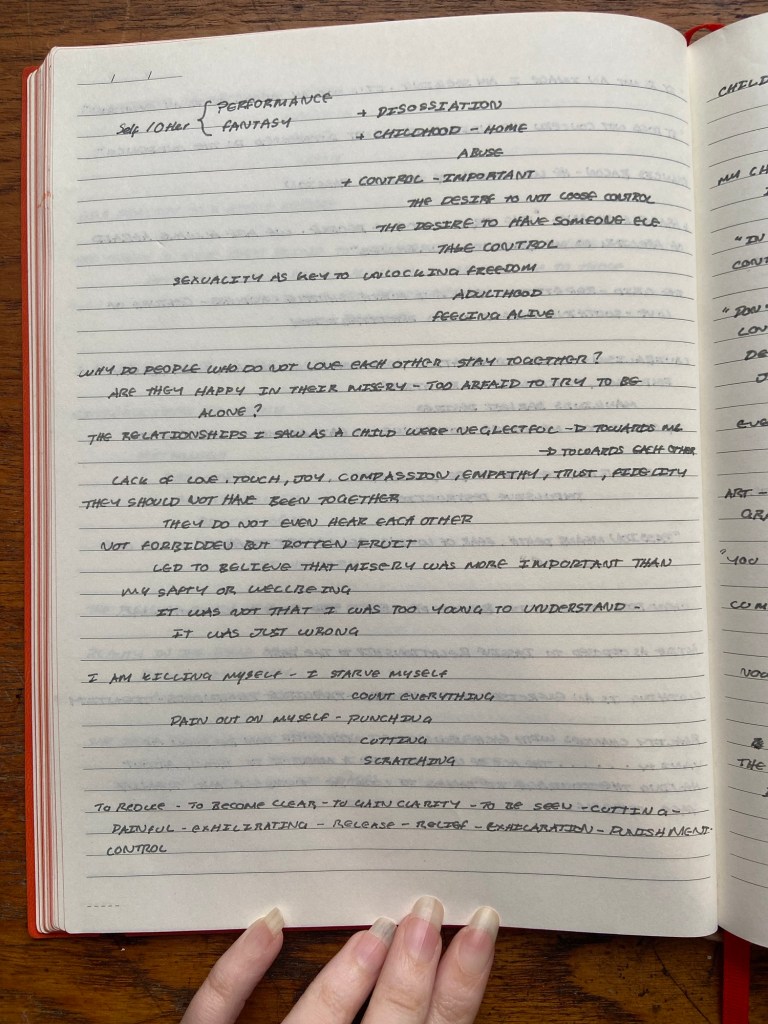 / /
Self / Other { PERFORMANCE
FANTASY
+ DISOSSIATION
+ CHILDHOOD - HOME
ABUSE
+ CONTROL - IMPORTANT
THE DESIRE TO NOT LOOSE CONTROL
THE DESIRE TO HAVE SOMEONE ELE
TAKE CONTROL
SEXUALITY AS KEY TO UNLOCKING FREEDOM
ADULTHOOD
FEELING ALIVE
WHY DO PEOPLE WHO DO NOT LOVE EACH OTHER STAY TOGETHER?
ARE THEY HAPPY IN THEIR MISERY - TOO AFRAID TO TRY TO BE
ALONE?
THE RELATIONSHIPS I SAW AS A CHILD WERE NEGLECTFUL → TOWARDS ME
→ TOWARDS EACH OTHER
LACK OF LOVE, TOUCH, JOY, COMPASSION, EMPATHY, TRUST, FIDELITY
THEY SHOULD NOT HAVE BEEN TOGETHER
THEY DO NOT EVEN HEAR EACH OTHER
NOT FORBIDDEN BUT ROTTEN FRUIT
LED TO BELIEVE THAT MISERY WAS MORE IMPORTANT THAN
MY SAFTY OR WELLBEING
IT WAS NOT THAT I WAS TOO YOUNG TO UNDERSTAND -
IT WAS JUST WRONG
I AM KILLING MYSELF - I STARVE MYSELF
COUNT EVERYTHING
PAIN OUT ON MYSELF - PUNCHING
CUTTING
SCRATCHING
TO REDUCE - TO BECOME CLEAR - TO GAIN CLARITY - TO BE SEEN - CUTTING -
PAINFUL - EXHILIRATING - RELEASE - RELIEF - EXHILARATION - PUNISHMENT.
CONTROL
CHILD
MY CH
"IN
CON
"DON'
LOV
DE
J
EVE
ART -
GRA
"YOU
COM
NOU
THE